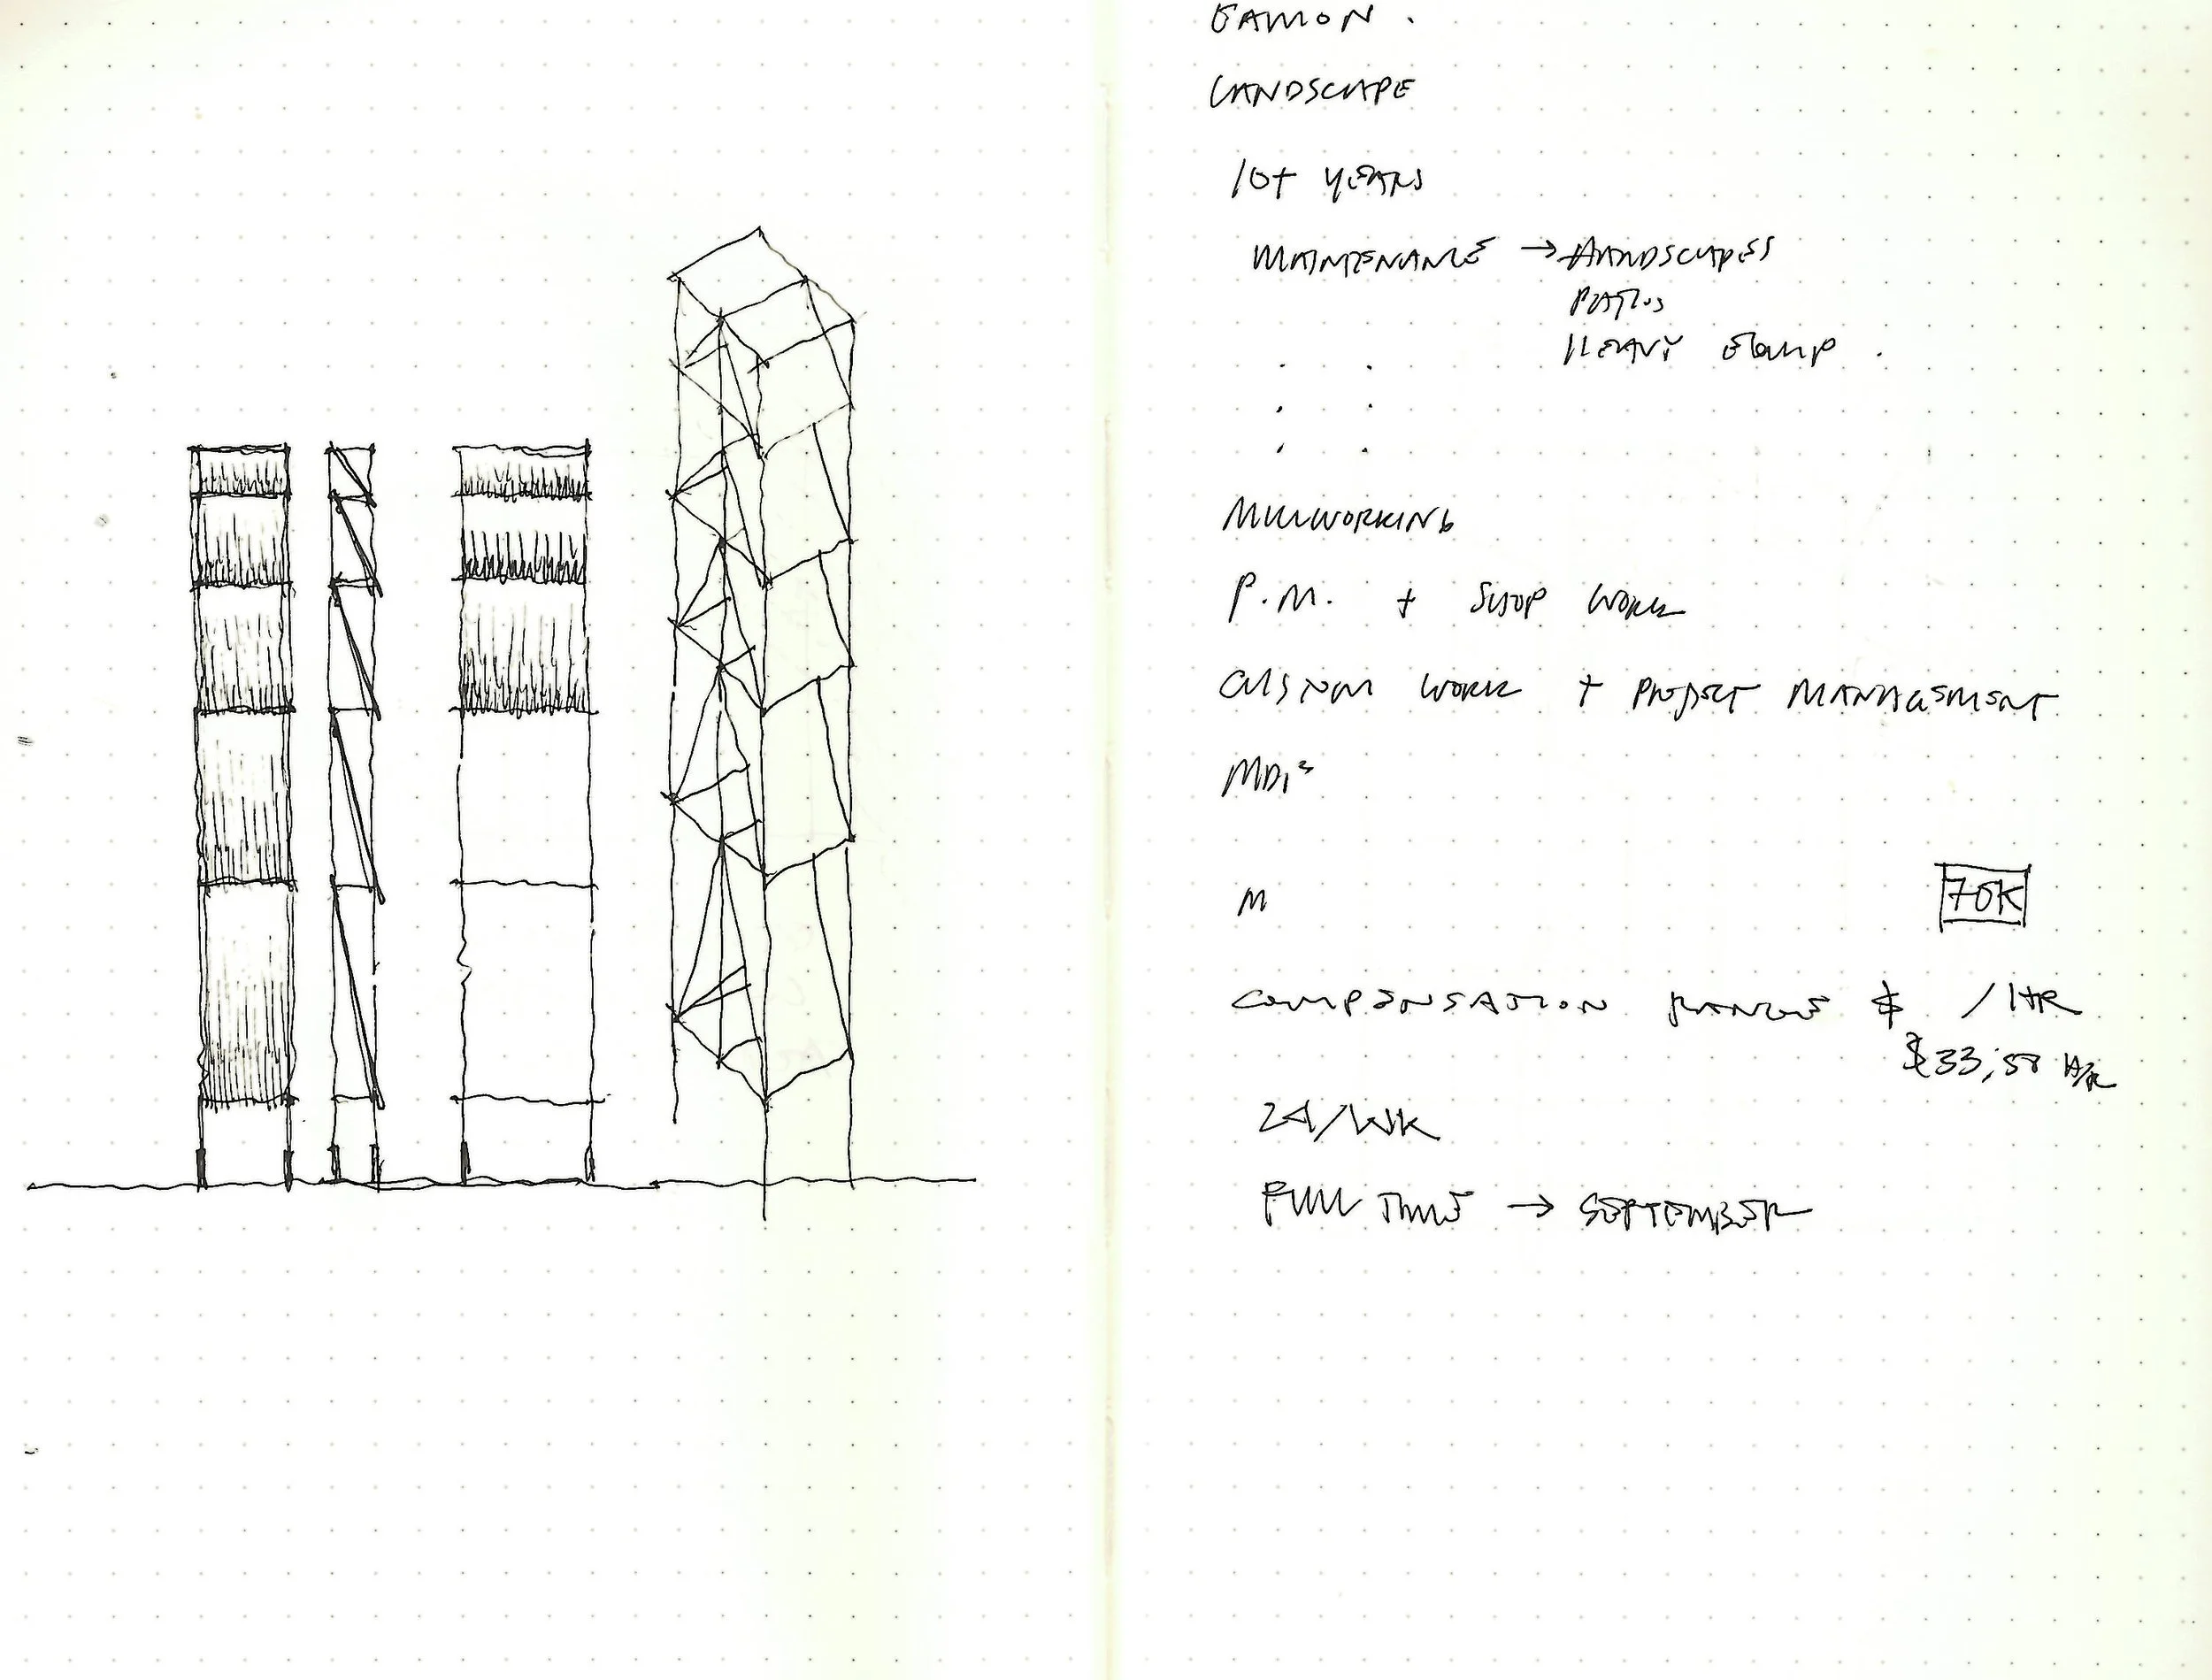 EAMON.
LANDSCAPE
10+ YEARS
MAINTENANCE → HARDSCAPES
PATIOS
HEAVY EQUIP.
MILLWORKING
P.M. + SHOP WORK
CUSTOM WORK + PROJECT MANAGEMENT
M
70K
COMPENSATION RANGE $ /HR
$33,58 HR
24/WK
FULL TIME → SEPTEMBER